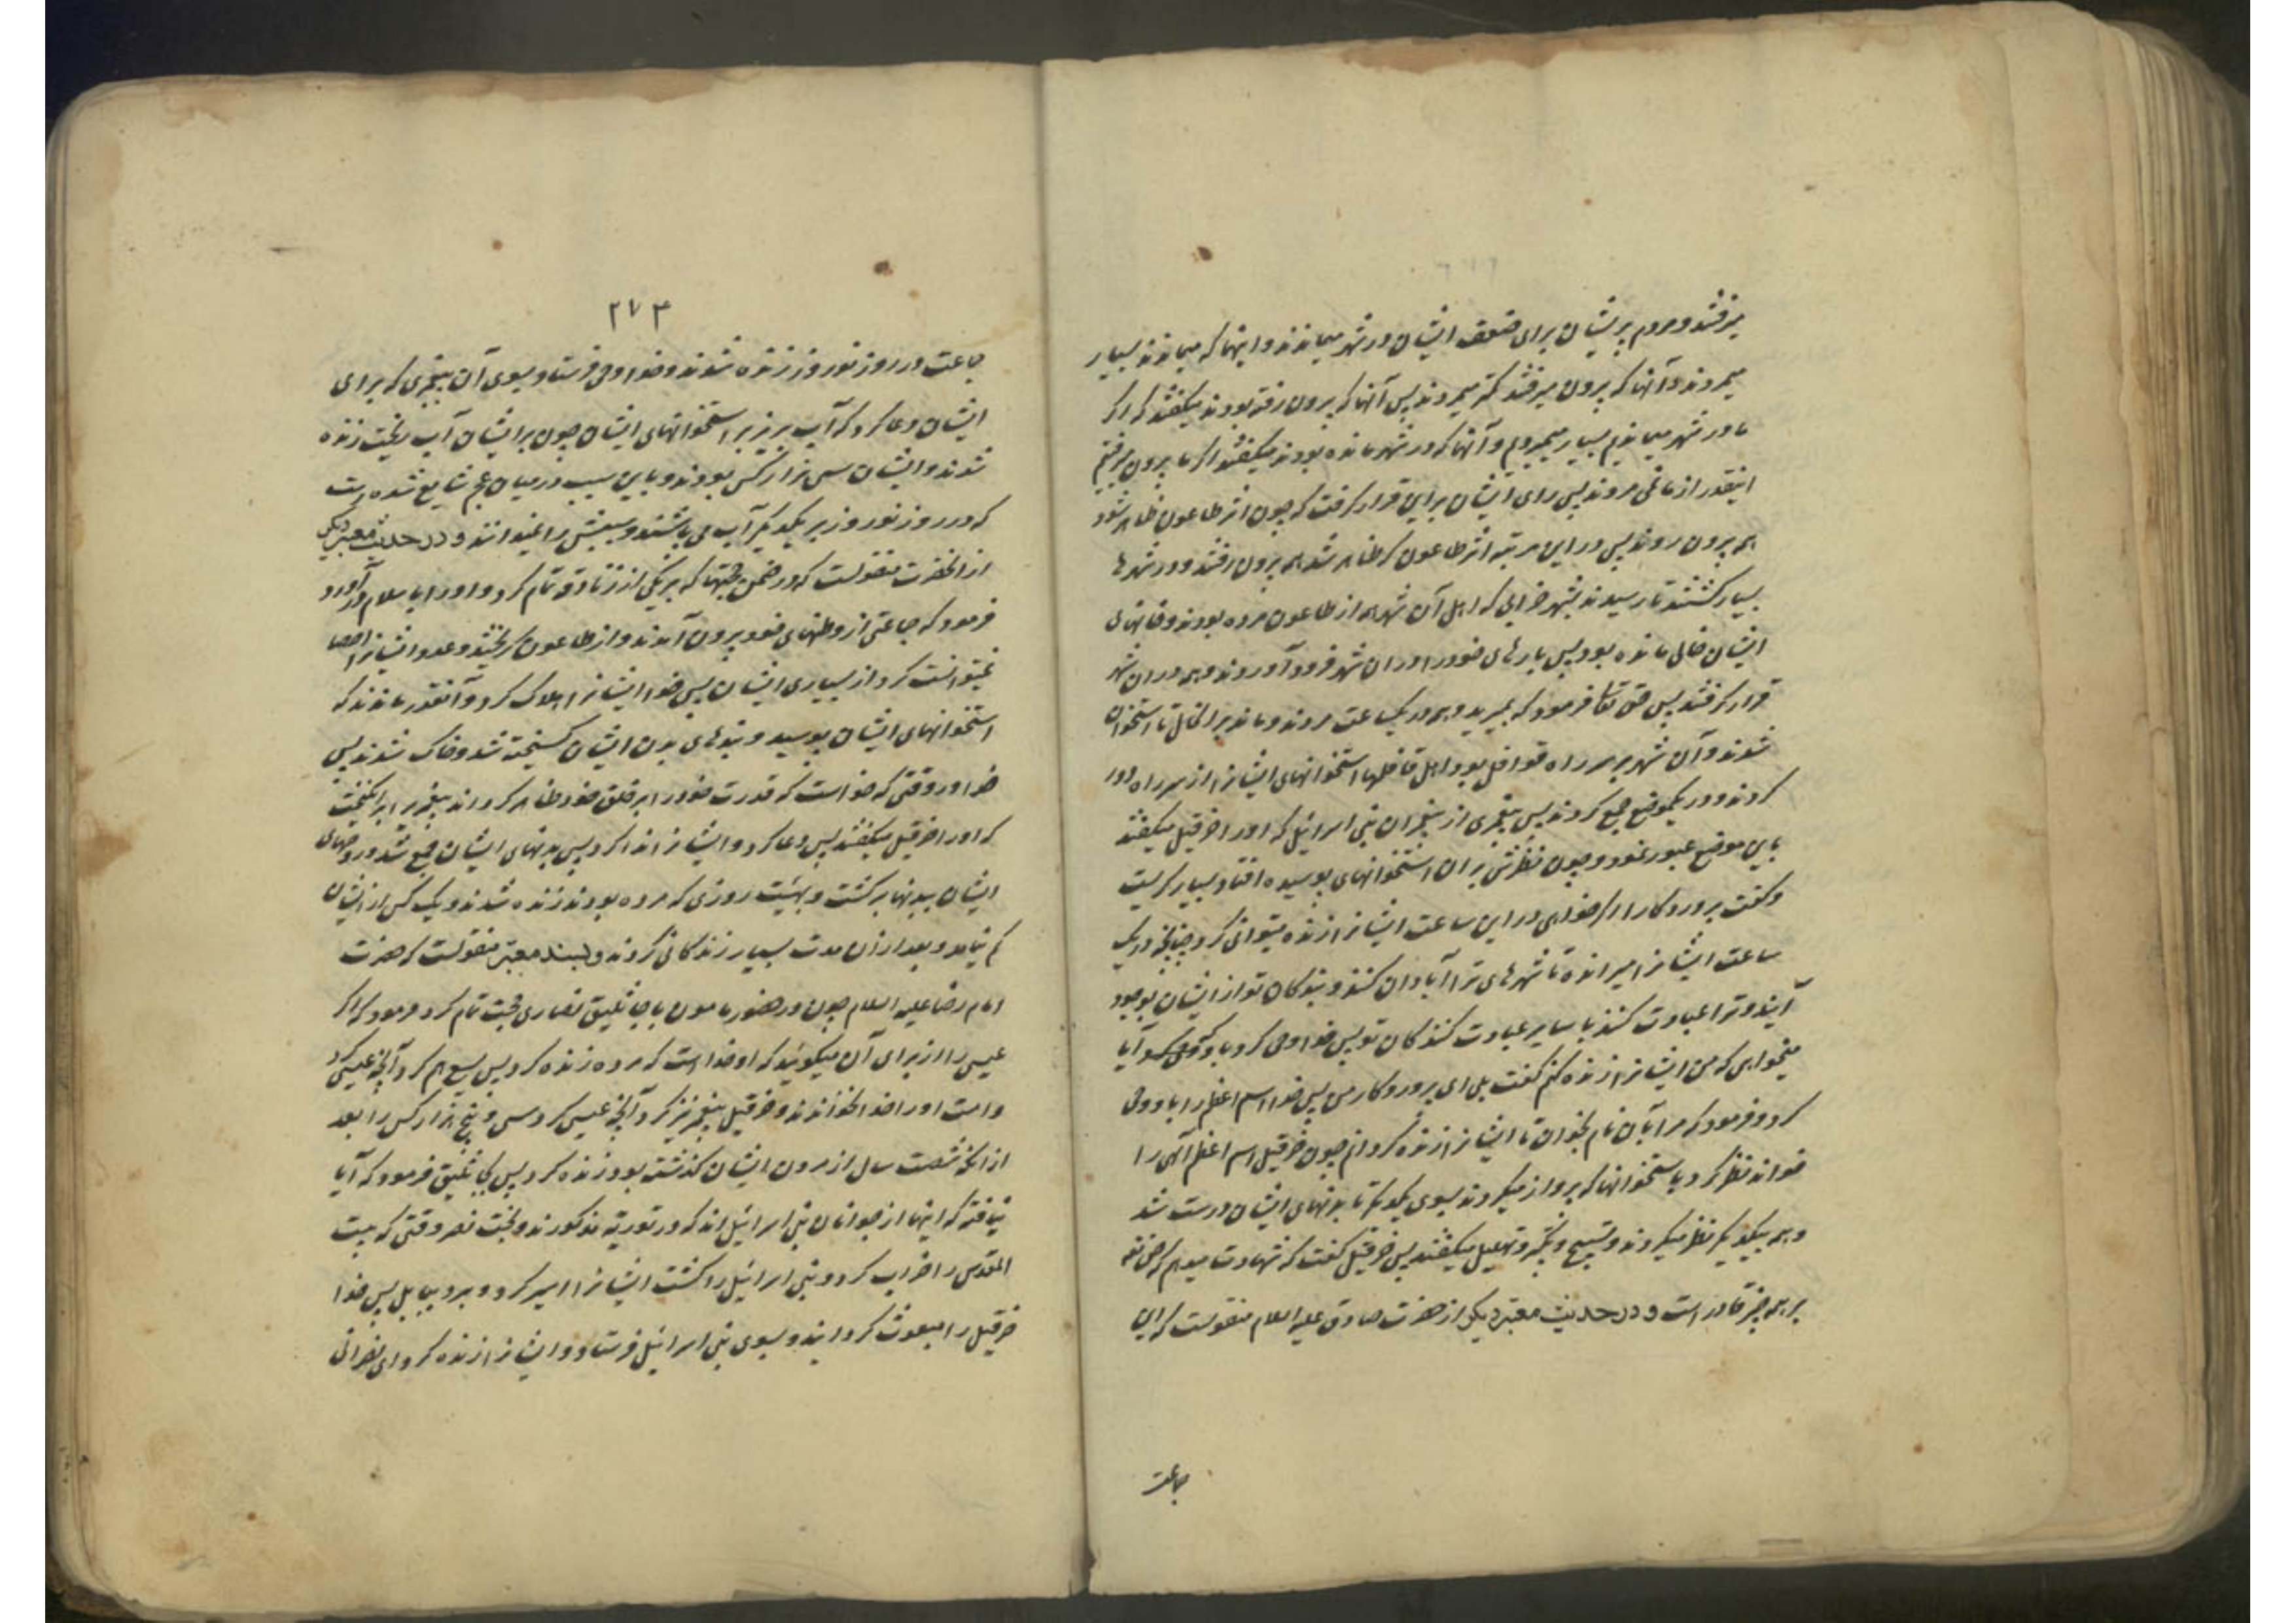 میرفتند و مردم پریشان برای ضعف ایشان در شهر میماندند و اینها که میماندند بسیار
میمردند و آنها که بیرون میرفتند کمتر میمردند پس آنها که بیرون رفته بودند میگفتند که اگر
ما در شهر میماندیم بسیار میمردیم و آنها که در شهر مانده بودند میگفتند اگر ما بیرون میرفتیم
اینقدر از ما نمی مردند پس رای ایشان براین قرار گرفت که چون اثر طاعون ظاهر شود
همه بیرون روند پس در این مرتبه اثر طاعون که ظاهر شد همه بیرون رفتند و در شهرها
بسیار گشتند تا رسیدند بشهر خرابی که اهل آن شهر همه از طاعون مرده بودند و خانهای
ایشان خالی مانده بود پس بارهای خود را در ان شهر فرود آوردند و همه در ان شهر
قرار گرفتند پس حق تعالی فرمود که بمیرید و همه در یکساعت مردند و ماندند بر انحال تا استخوان
شدند و آن شهر بر سر راه قوافل بود و اهل قافلها استخوانهای ایشانرا از سر راه دور
کردند و در یکموضع جمع کردند پس پیغمبری از پیغمبران بنی اسرائیل که او را حزقیل میگفتند
باین موضع عبور نمود و چون نظرش بر ان استخوانهای پوسیده افتاد بسیار گریست
و گفت پروردگارا اگر خواهی در این ساعت ایشانرا زنده میتوانی کرد چنانچه در یک
ساعت ایشانرا میرانده تا شهرهای ترا آبادان کنند و بندگان تو از ایشان بوجود
آیند و ترا عبادت کنند با سایر عبادت کنندگان تو پس خدا وحی کرد باو که آیا
میخواهی که من ایشانرا زنده کنم گفت بلی ای پروردگار من پس خدا اسم اعظم را باو وحی
کرد و فرمود که مرا بآن نام بخوان تا ایشانرا زنده گردانم چون حزقیل اسم اعظم آلهی را
خواند نظر کرد باستخوانها که پرواز میکردند بسوی یکدیگر تا بدنهای ایشان درست شد
و همه بیکدیگر نظر میکردند و تسبیح و تکبیر و تهلیل میگفتند پس حزقیل گفت که شهادت میدهم که حق تعالی
بر همه چیز قادر است و در حدیث معتبر دیگر از حضرت صادق علیه السلام منقولست که این
جماعت
۲۷۳
جماعت در روز نوروز زنده شدند و خدا وحی فرستاد بسوی آن پیغمبری که برای
ایشان دعا کرد که آب بریز بر استخوانهای ایشان چون بر ایشان آب ریخت زنده
شدند و ایشان سی هزار کس بودند و باین سبب در میان عجم شایع شده است
که در روز نوروز بر یکدیگر آب می پاشند و سببش را نمیدانند و در حدیث معتبر دیگر
از انحضرت منقولست که در ضمن حجتها که بر یکی از زنادقه تمام کرد و او را باسلام در آورد
فرمود که جماعتی از وطنهای خود بیرون آمدند و از طاعون گریختند و عدد ایشانرا احصا
نمیتوانست کرد از بسیاری ایشان پس خدا ایشانرا هلاک کرد و آنقدر ماندند که
استخوانهای ایشان پوسید و بندهای بدن ایشان گسیخته شد و خاک شدند پس
خدا در وقتی که خواست که قدرت خود را بر خلق خود ظاهر گرداند پیغمبریرا برانگیخت
که او را حزقیل میگفتند پس دعا کرد و ایشانرا ندا کرد پس بدنهای ایشان جمع شد و روحهای
ایشان ببدنها برگشت و بهیئت روزی که مرده بودند زنده شدند و یک کس از ایشان
کم نیامد و بعد از ان مدت بسیار زندگانی کردند و بسند معتبر منقولست که حضرت
امام رضا علیه السلام چون در حضور مامون با جاثلیق نصاری حجت تمام کرد فرمود که اگر
عیسی را از برای آن میگوئید که او خدا است که مرده زنده کرد پس یسع هم کرد آنچه عیسی کرد
و امت او را خدا نخواندند و حزقیل پیغمبر نیز کرد آنچه عیسی کرد سی و پنج هزار کس را بعد
از انکه شصت سال از مردن ایشان گذشته بود زنده کرد پس بجاثلیق فرمود که آیا
نیافته که اینها از جوانان بنی اسرائیل اند که در توریة مذکورند و بخت نصر وقتی که بیت
المقدس را خراب کرد و بنی اسرائیل را کشت ایشانرا اسیر کرد و برد ببابل پس خدا
حزقیل را مبعوث گردانید و بسوی بنی اسرائیل فرستاد و ایشانرا زنده کرد ای نصرانی